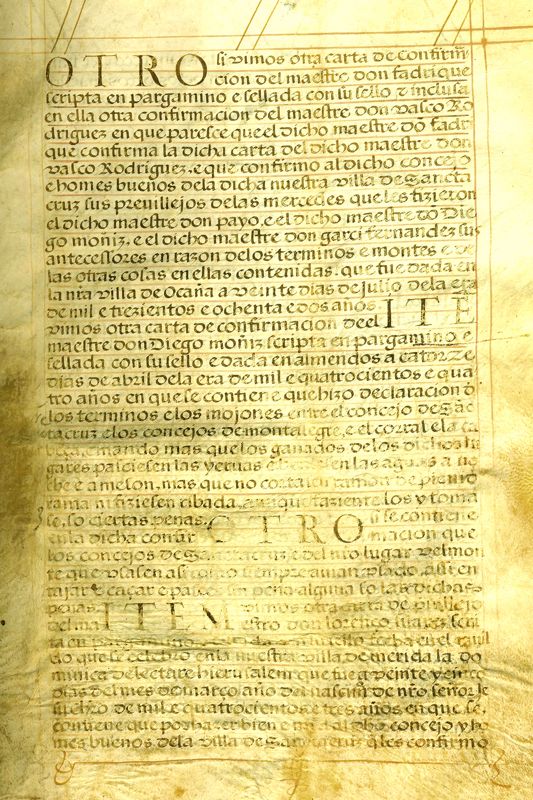 OTRO si vimos otra carta de confirm̃
cion del maestre don fadrique
scripta en pargamino e sellada con su sello e inclusa
en ella otra confirmacion del maestre don vasco Ro
driguez en que paresce que el dicho maestre dõ fadri
que confirma la dicha carta del dicho maestre don
vasco Rodriguez, e que confirmo al dicho concejo
e homes buenos dela dicha nuestra villa de Sancta
cruz sus previllejos delas mercedes que les fizieron
el dicho maestre don payo, e el dicho maestre dõ Die
go moñiz, e el dicho maestre don garci fernandez sus
antecessores en razon delos terminos e montes e de
las otras cosas en ellas contenidas. que fue dada en
la nr̃a villa de Ocaña a veinte dias de jullo dela era
de mil e trezientos e ochenta e dos años ITẼ
vimos otra carta de confirmacion deel
maestre don Diego moñiz scripta en pargamino e
sellada con su sello e dada en almendos a catorze
dias de abril dela era de mil e quatrocientos e qua
tro años en que se contiene que hizo declaracion d
los terminos e los mojones entre el concejo de Sãc
tacruz e los concejos de montalegre, e el corral ela ca
beça, e mando mas que los ganados delos dichos lu
gares pasciesen las yervas e en las aguas a
ebe e a melon, mas que no cortasen rama de
rama ni fiziesen ribada, los y toma
se, so ciertas penas. OTRO si se contiene
en la dicha confir macion que
los concejos de Sanctacruz, e del nr̃o lugar velmon
te que vsasen asi como siempre avian vsado, assi en
tajar e caçar e pascer sin pena alguna so las dichas
penas. ITEM vimos otra carta de previllejo
del ma estro don lorenço suarez scri
ta en pargamino fecha en el
do que se celebro en la nuestra villa de merida la do
minica de lectare hierusalem que fue a veinte y
dias del mes de março año del nascim̃ de nr̃o señor Je
su chr̃o de mil e quatrocientos e tres años en que se
contiene que por hazer bien e al dho concejo y ho
mes buenos dela villa de Sanctacruz q̃ les confirmo